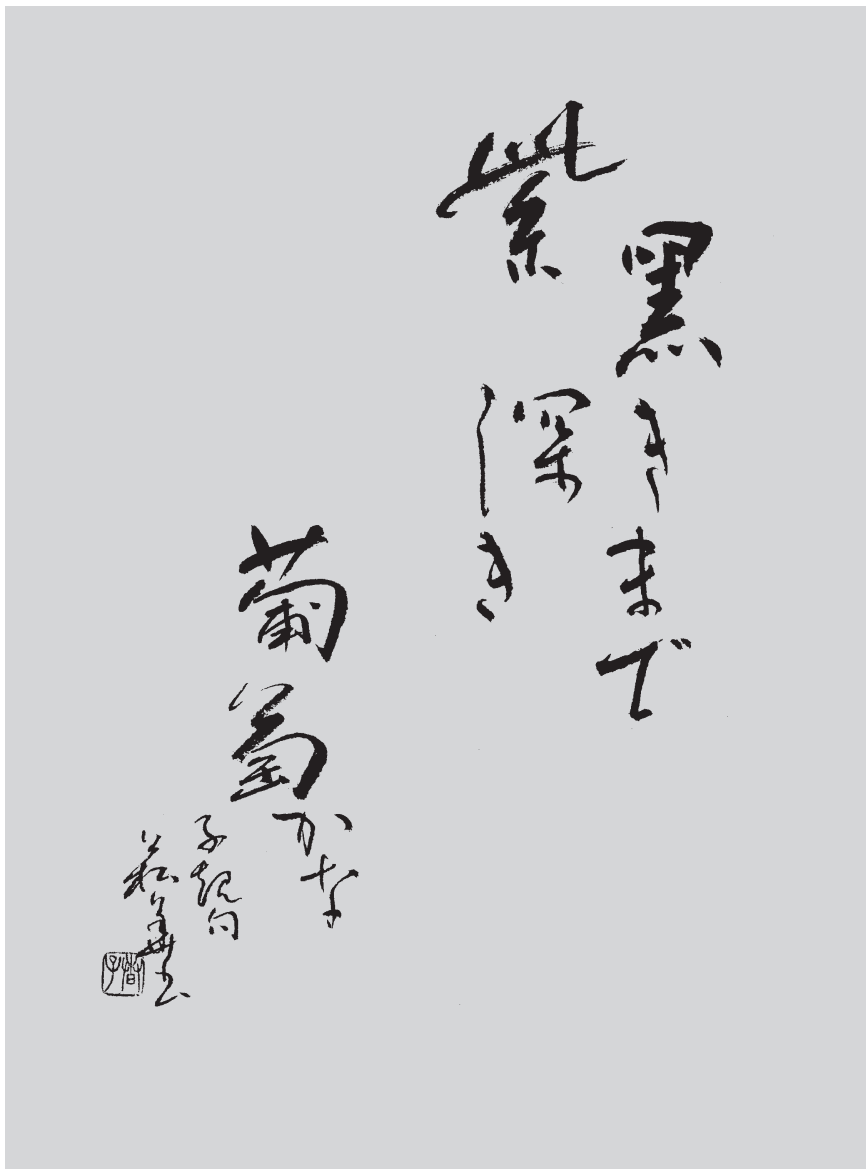 黒きまで
紫深き
葡萄かな
子規句
書